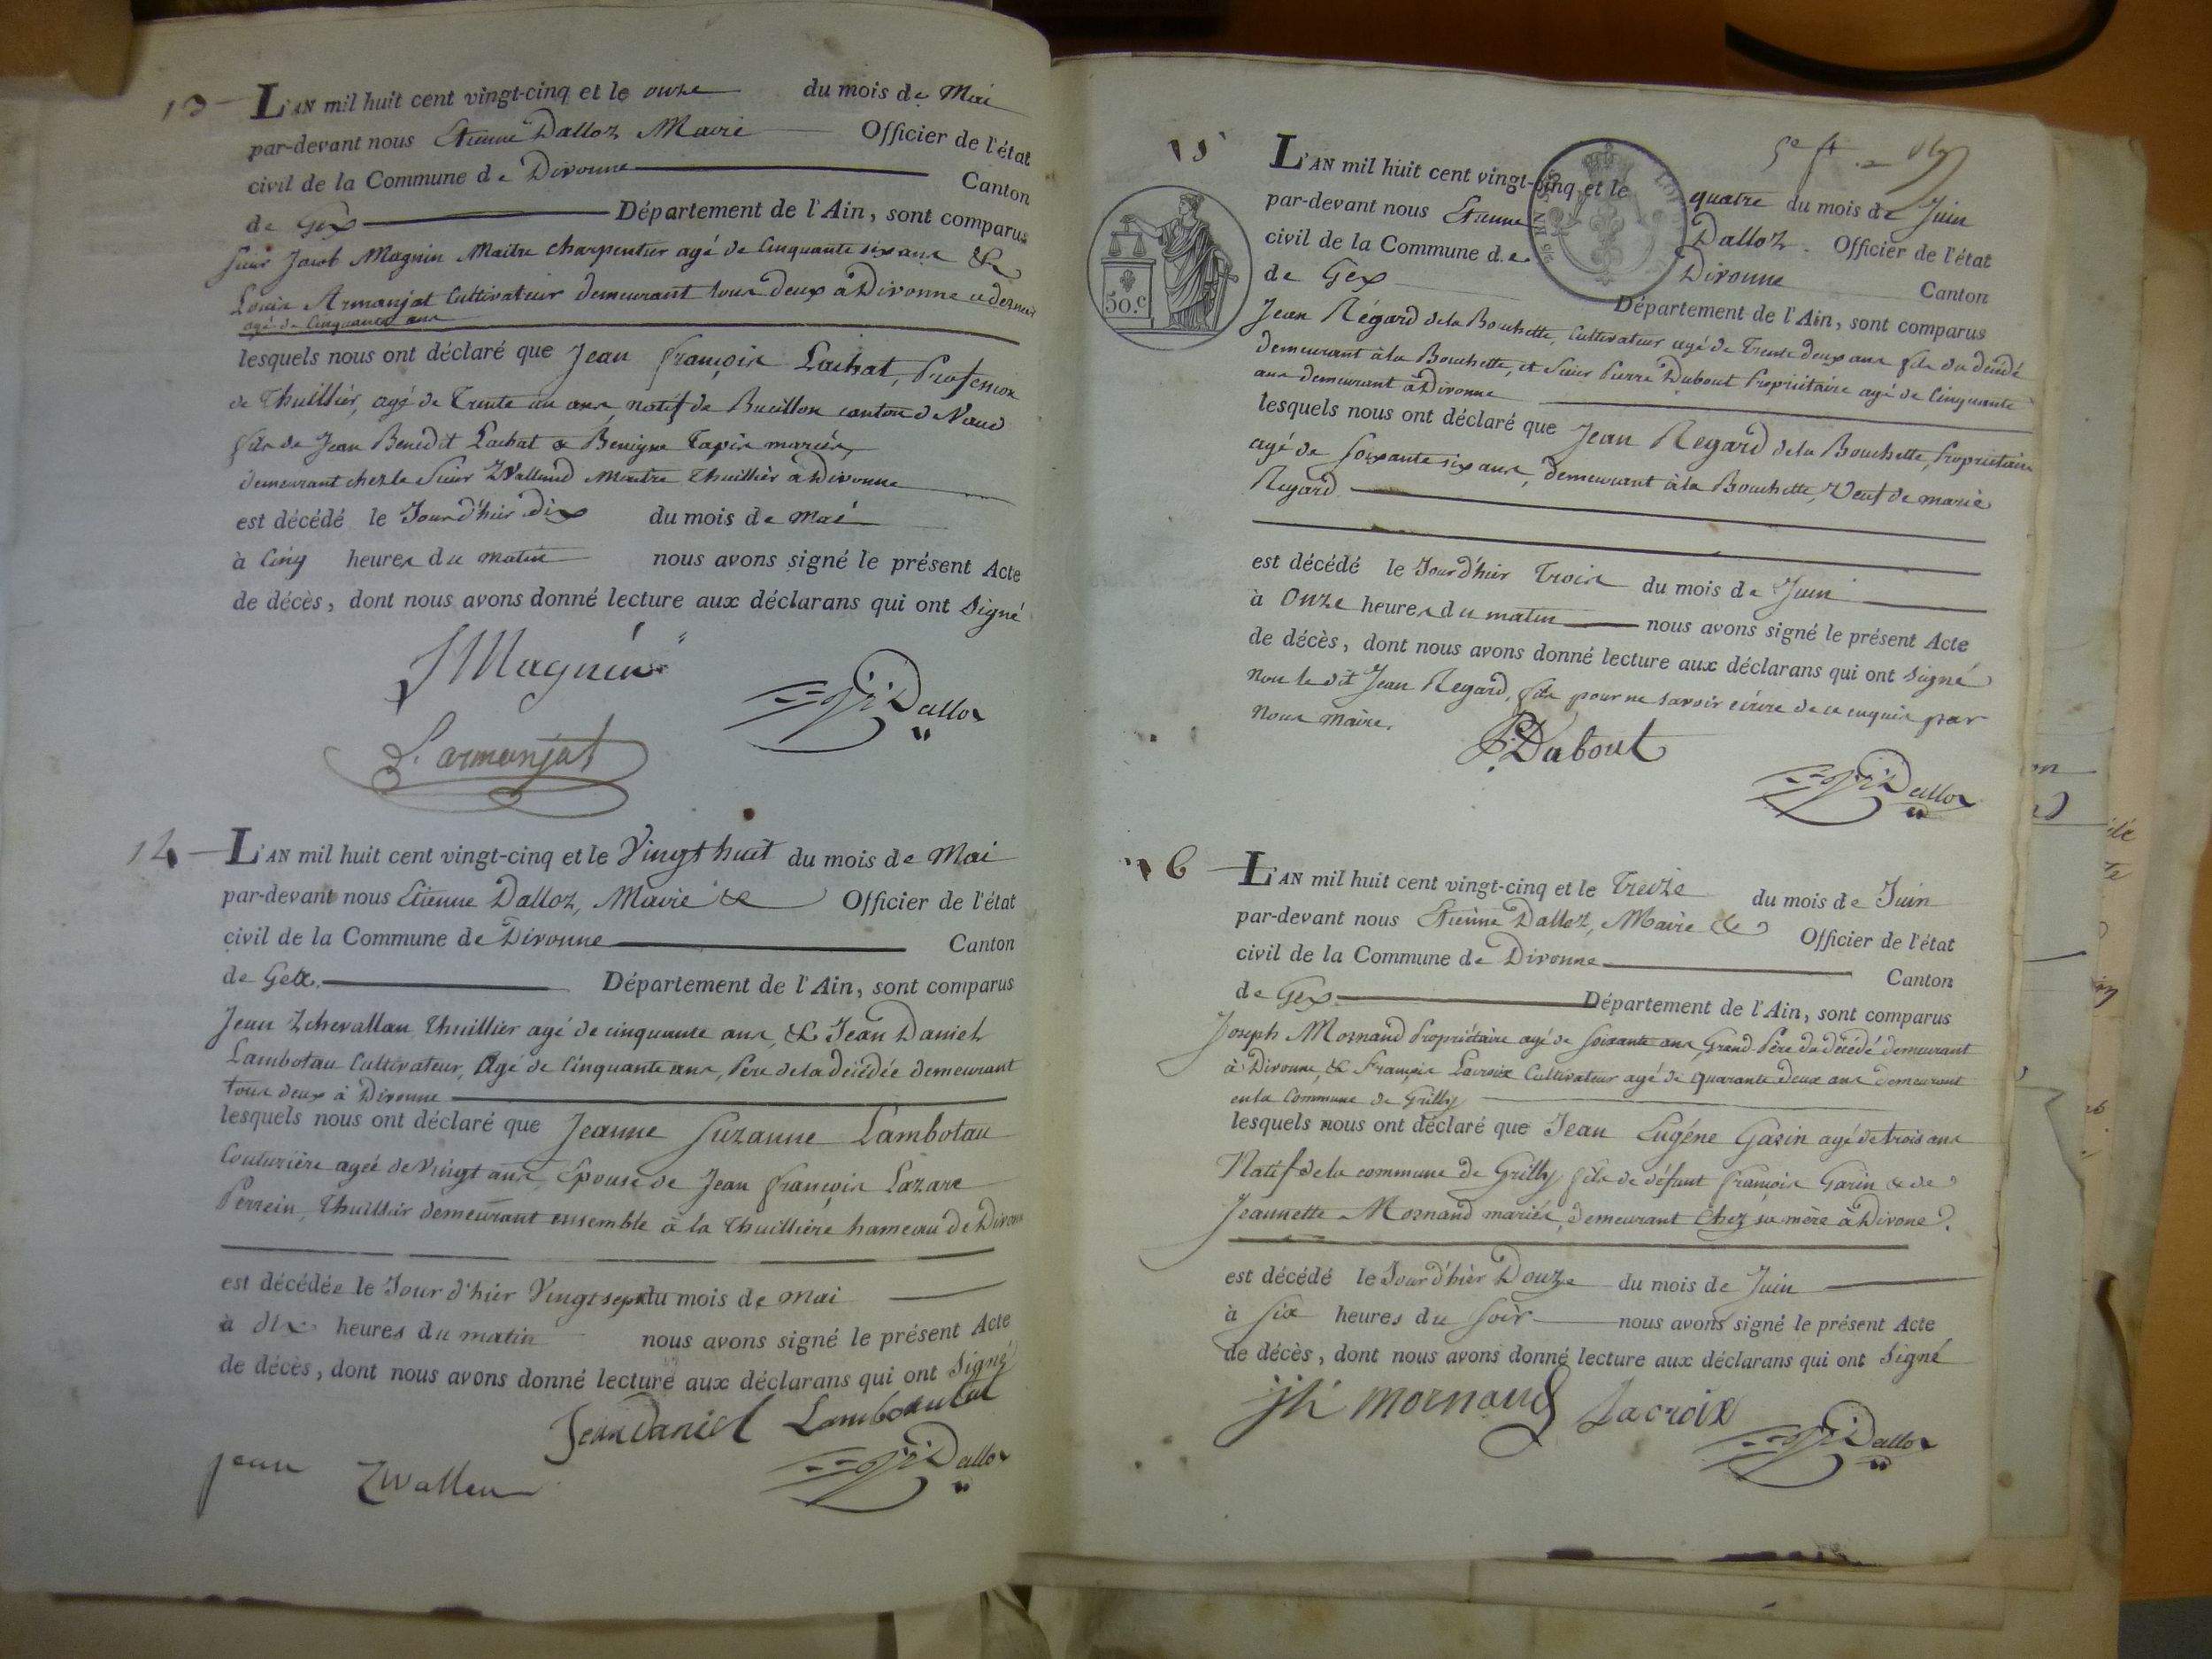 13
L'AN mil huit cent vingt-cinq et le onze du mois de Mai
par-devant nous Etienne Dalloz Maire Officier de l'état
civil de la Commune de Divonne Canton
de Gex Département de l'Ain, sont comparus
Sieur Jacob Magnin Maitre charpentier agé de Cinquante six ans &
Louis Armanjat Cultivateur demeurant tous deux à Divonne ce dernier
agé de Cinquante ans
lesquels nous ont déclaré que Jean François Lachat, Profession
de Thuillier, agé de Trente un ans natif de Bucillon canton de Vaud
fils de Jean Benedit Lachat & Benigne Tapis mariés,
demeurant chez le Sieur Wallend Maitre Thuillier à Divonne
est décédé le Jourd'hier dix du mois de Mai
à Cinq heures du matin nous avons signé le présent Acte
de décès, dont nous avons donné lecture aux déclarans qui ont Signé
J Magnin
Dalloz
L. armanjat
14
L'AN mil huit cent vingt-cinq et le Vingt huit du mois de Mai
par-devant nous Etienne Dalloz, Maire & Officier de l'état
civil de la Commune de Divonne Canton
de Gex Département de l'Ain, sont comparus
Jean Zchevallan Thuillier agé de cinquante ans, & Jean Daniel
Lambotau Cultivateur, Agé de Cinquante ans, Père de la décédée demeurant
tous deux à Divonne
lesquels nous ont déclaré que Jeanne Suzanne Lambotau
Couturière ageé de Vingt ans, Epouse de Jean françois Lazare
Perrein, Thuillier demeurant ensemble à la Thuillière hameau de Divonne
est décédée le Jour d'hier Vingt sept du mois de Mai
à dix heures du matin nous avons signé le présent Acte
de décès, dont nous avons donné lecture aux déclarans qui ont Signé
Jean Daniel Lambotau
jean Zwallen
Dalloz
15
L'AN mil huit cent vingt-cinq et le quatre du mois de Juin
par-devant nous Etienne Dalloz Officier de l'état
civil de la Commune de Divonne Canton
de Gex Département de l'Ain, sont comparus
50.c
Jean Régard de la Bouchette, Cultivateur agé de Trente deux ans fils du décédé
demeurant à la Bouchette, et Sieur Pierre Dubout Propriétaire agé de Cinquante
ans demeurant à Divonne
lesquels nous ont déclaré que Jean Regard de la Bouchette, Propriétaire
agé de Soixante six ans, demeurant à la Bouchette, Veuf de marie
Regard
est décédé le Jourd'hier Trois du mois de Juin
à Onze heures du matin nous avons signé le présent Acte
de décès, dont nous avons donné lecture aux déclarans qui ont Signé
non le dit Jean Regard, fils pour ne savoir écrire de ce enquis par
nous maire.
P. Dubout
Dalloz
16
L'AN mil huit cent vingt-cinq et le Treize du mois de Juin
par-devant nous Etienne Dalloz, Maire & Officier de l'état
civil de la Commune de Divonne Canton
de Gex Département de l'Ain, sont comparus
Joseph Mornand Propriétaire agé de Soixante ans, Grand-Père du décédé demeurant
à Divonne, & François Lacroix Cultivateur agé de quarante deux ans demeurant
en la Commune de Grilly
lesquels nous ont déclaré que Jean Eugéne Garin agé de trois ans
Natif de la commune de Grilly fils de défunt françois Garin & de
Jeannette Mornand mariés, demeurant chez sa mère à Divone.
est décédé le Jourd'hier Douze du mois de Juin
à Six heures du Soir nous avons signé le présent Acte
de décès, dont nous avons donné lecture aux déclarans qui ont Signé
jh mornand Lacroix
Dalloz